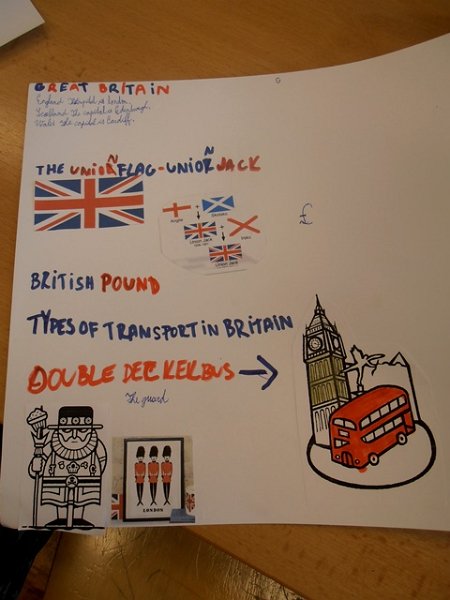 GREAT BRITAIN
England The capital is london
Scotland The capital is Edinburgh.
Wales The capital is Cardiff.
THE UNION FLAG - UNION JACK
Anglie
Skotsko
Union Jack
Irsko
Union Jack
£
BRITISH POUND
TYPES OF TRANSPORT IN BRITAIN
DOUBLE DERKER BUS →
The guard
LONDON